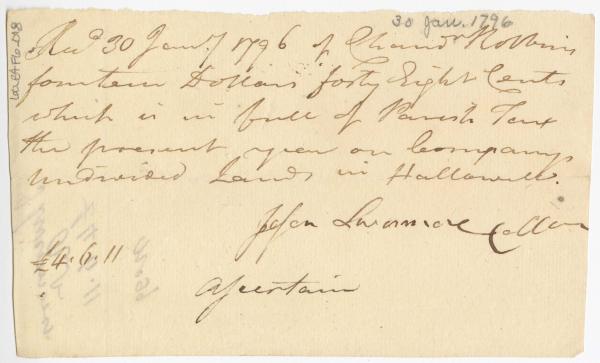 30 Jan. 1796
Recd 30 Jany 1796 of Chandr Robbins
fourteen Dollars forty Eight Cents
which is in full of Parish Tax
the present year on Companys
undivided Lands in Hallowell.
Livermore Collr
£4.6.11
Ascertain